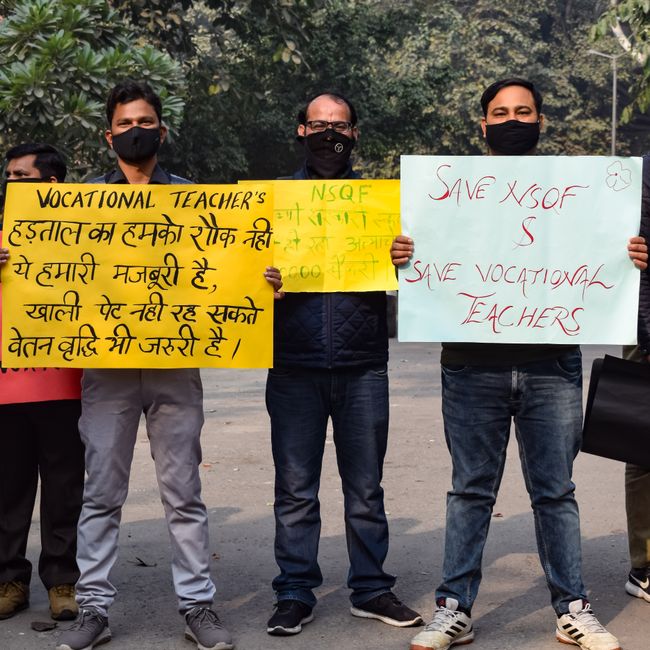 VOCATIONAL TEACHER'S
हड़ताल का हमको शौक नहीं
ये हमारी मजबूरी है,
खाली पेट नही रह सकते
वेतन वृद्धि भी जरुरी है।
NSQF
रहा
SAVE NSQF
&
SAVE VOCATIONAL
TEACHERS